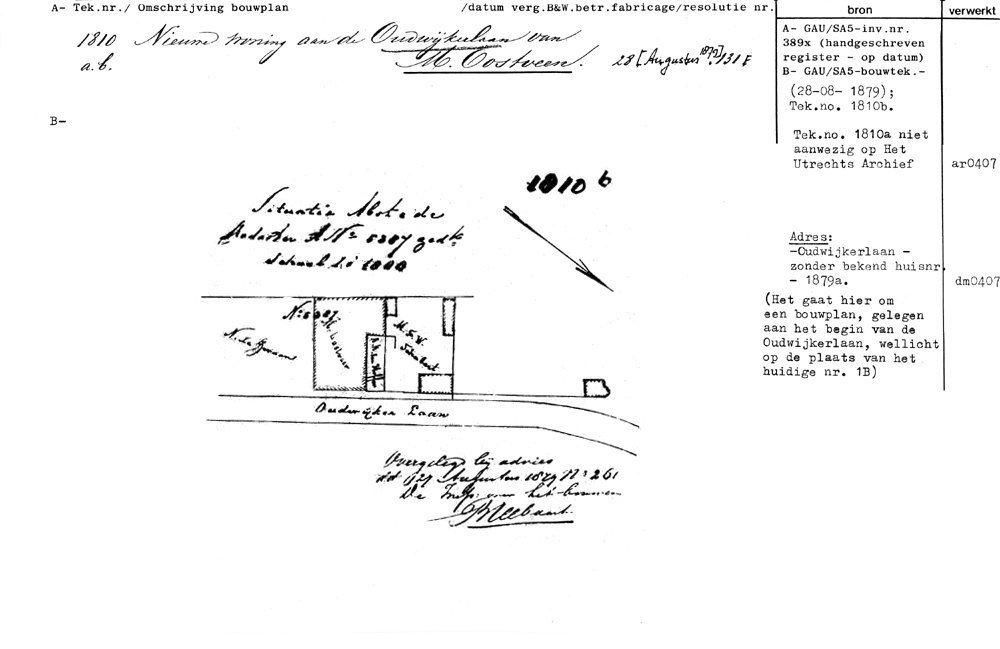 A- Tek.nr./ Omschrijving bouwplan /datum verg.B&W.betr.fabricage/resolutie nr.
bron
verwerkt
1810 Nieuwe woning aan de Oudwijkerlaan van
a.b. M. Oostveen. 28 [Augustus 1879]. 131 F
A- GAU/SA5-inv.nr.
389x (handgeschreven
register - op datum)
B- GAU/SA5-bouwtek.-
(28-08- 1879);
Tek.no. 1810b.
B-
Tek.no. 1810a niet
aanwezig op Het
Utrechts Archief ar0407
1810 b
Situatie Abstede
Kadaster A No 5387 gedte
Schaal 1 à 1000
Adres:
-Oudwijkerlaan -
zonder bekend huisnr.
- 1879a. dm0407
(Het gaat hier om
een bouwplan, gelegen
aan het begin van de
Oudwijkerlaan, wellicht
op de plaats van het
huidige nr. 1B)
No 5387
Oudwijker Laan
Overgelegd bij advies
dd 27 Augustus 1879 No 261
De Insp: over het bouwen